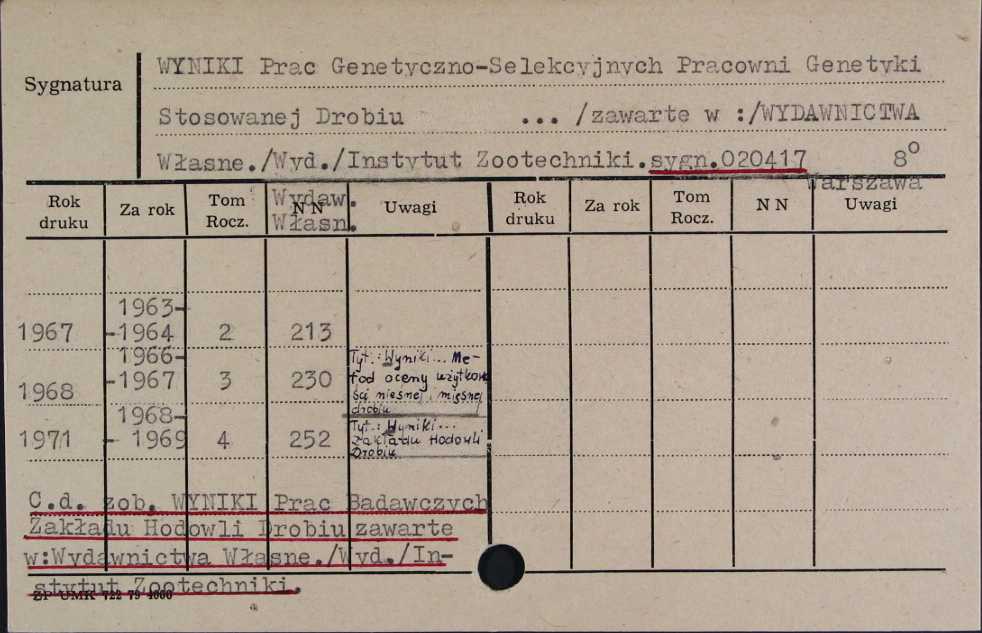 Sygnatura
WYNIKI Prac Genetyczno-Selekcyjnych Pracowni Genetyki
Stosowanej Drobiu ... /zawarte w :/WYDAWNICTWA
Własne./Wyd./Instytut Zootechniki.sygn.020417 8°
Warszawa
Rok druku Za rok Tom Rocz. NN Wydaw. Własn. Uwagi Rok druku Za rok Tom Rocz. NN Uwagi
1967 1963--1964 2 213
1968 1966--1967 3 230 Tyt.: Wyniki... Me-
tod oceny użytkow
ści nieśnej i mięsnej
drobiu
1971 1968-- 1969 4 252 Tyt.: Wyniki...
Zakładu Hodowli
Drobiu
C.d. zob. WYNIKI Prac Badawczych
Zakładu Hodowli Drobiu zawarte
w:Wydawnictwa Własne./Wyd./In-
stytut Zootechniki.
ZP UMK 722 79 4000